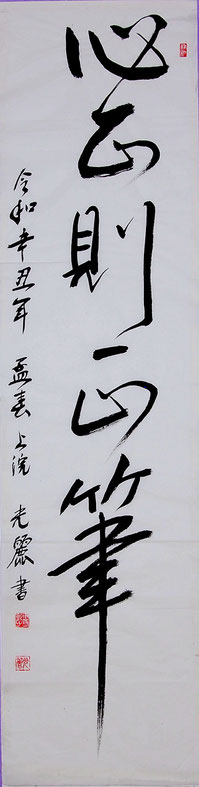 心正則正筆
令和辛丑年 孟春 上浣 光麗 書